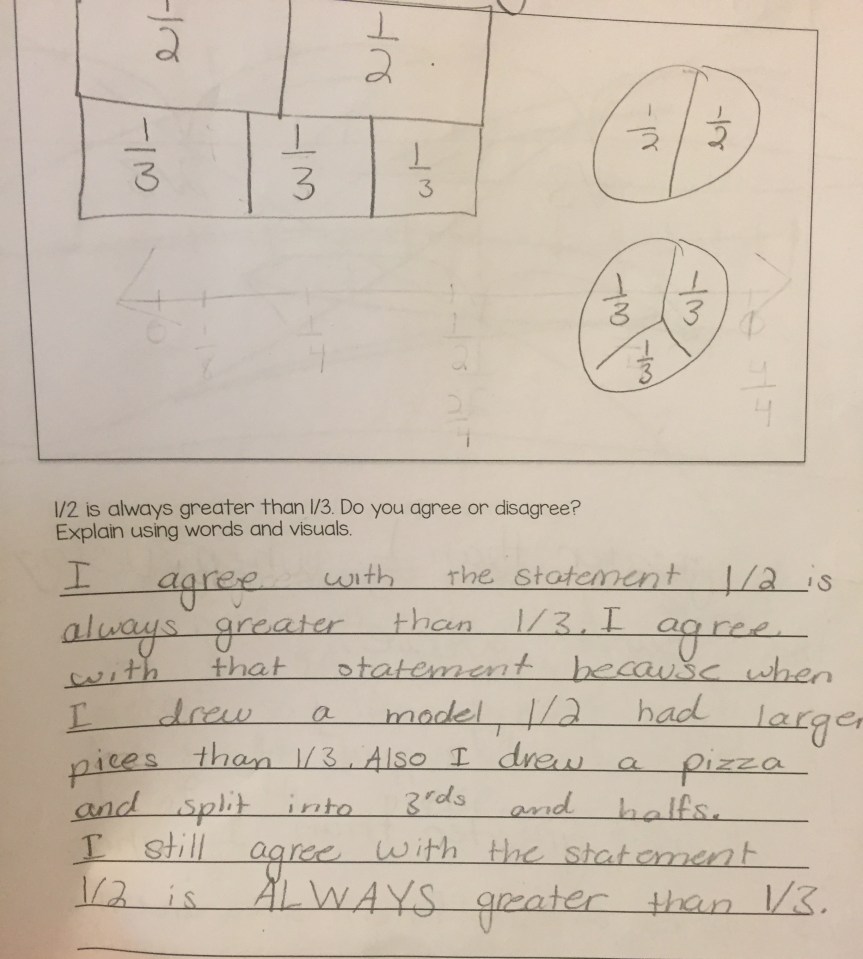 1/2 1/2
1/2 1/2
1/3 1/3 1/3
1/3 1/3
1/3
0 1/8 1/4 1/2 0
2/4 4/4
1/2 is always greater than 1/3. Do you agree or disagree?
Explain using words and visuals.
I agree with the statement 1/2 is
always greater than 1/3. I agree
with that statement because when
I drew a model, 1/2 had larger
pices than 1/3. Also I drew a pizza
and split into 3rds and halfs.
I still agree with the statement
1/2 is ALWAYS greater than 1/3.